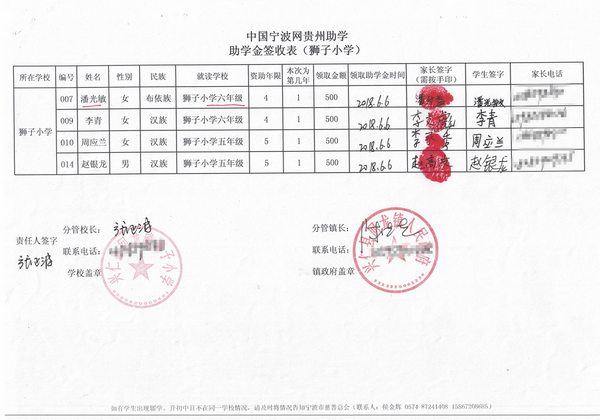 中国宁波网贵州助学
助学金签收表（狮子小学）
所在学校 编号 姓名 性别 民族 就读学校 资助年限 本次为第几年 领取金额 领取助学金时间 家长签字（需按手印） 学生签字 家长电话
狮子小学
007 潘光敏 女 布依族 狮子小学六年级 4 1 500 2018.6.6 潘光敏
009 李青 女 汉族 狮子小学六年级 4 1 500 2018.6.6 李青
010 周应兰 女 汉族 狮子小学五年级 5 1 500 2018.6.6 周应兰
014 赵银龙 男 汉族 狮子小学五年级 5 1 500 2018.6.6 赵银龙
分管校长： 分管镇长：
责任人签字
联系电话： 联系电话：
学校盖章 镇政府盖章
如有学生出现辍学、升初中且不在同一学校情况，请及时将情况告知宁波市慈善总会（联系人：侯金辉 0574-87241408 15867208605）